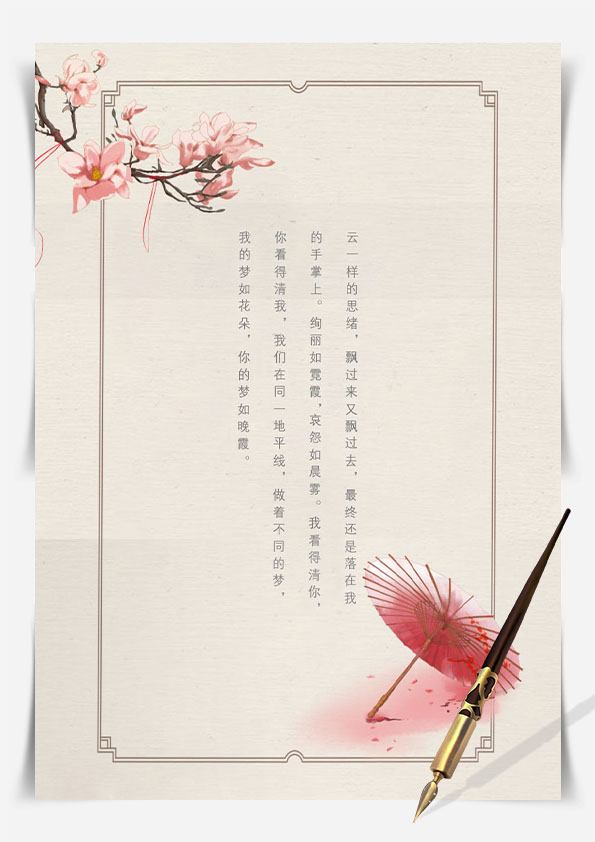 云一样的思绪，飘过来又飘过去，最终还是落在我
的手掌上。绚丽如霓霞，哀怨如晨雾。我看得清你，
你看得清我，我们在同一地平线，做着不同的梦，
我的梦如花朵，你的梦如晚霞。